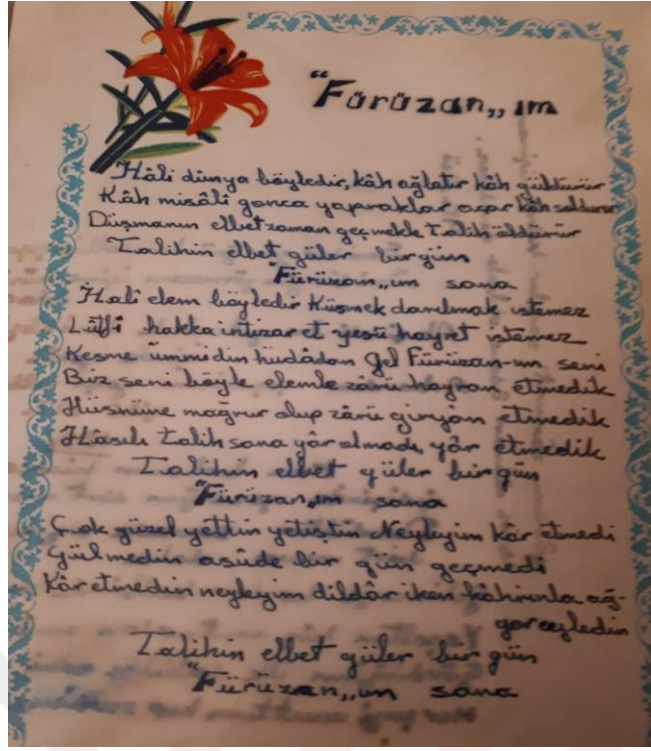 "Fürüzan„ ım
Hâli dünya böyledir, kâh ağlatır kâh güldürür
Kâh misâli gonca yapraklar açar kâh soldurur
Düşmanın elbet zaman geçmekle talih öldürür
Talihin elbet güler birgün
"Fürüzan„ım sana
Hali elem böyledir Küsmek darılmak istemez
Lütfi hakka intizar et yesü hayret istemez
Kesme ümmidin hüdâdan gel Fürüzan-ım seni
Biz seni böyle elemle zârü hayran etmedik
Hüsnüne mağrur olup zârü giryân etmedik
Hâsılı Talih sana yâr olmadı, yâr etmedik
Talihin elbet güler bir gün
"Fürüzan„ım sana
Çok güzel yettin yetiştin Neyleyim kâr etmedi
Gülmedin asûde bir gün geçmedi
Kâr etmedin neyleyim dildâr iken kâhrınla ağ-
Talihin elbet güler bir gün
"Fürüzan„ım sana